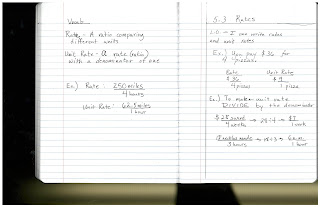 Vocab
Rate - A ratio comparing
different units
Unit Rate - A rate (ratio)
with a denominator of one
Ex.) Rate: 250 miles
4 hours
Unit Rate: 62.5 miles
1 hour
5.3 Rates
I can write rates
and unit rates
Ex.) You pay $36 for
4 pizzas.
Rate Unit Rate
$36 $9
4 pizzas 1 pizza
Ex.) To make unit rate
DIVIDE by the denominator
$28 saved → 28÷4 → $7
4 weeks 1 week
3 hours 1 hour